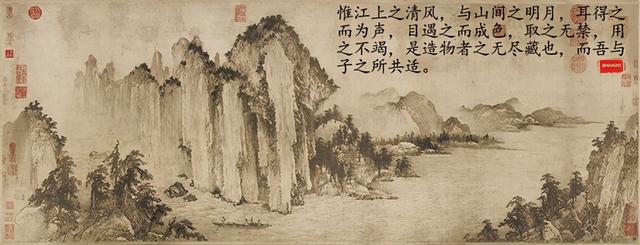 惟江上之清风，与山间之明月，耳得之
而为声，目遇之而成色，取之无禁，用
之不竭，是造物者之无尽藏也，而吾与
子之所共适。